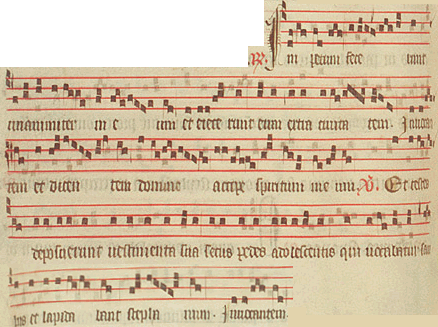 R. Im petum fece runt
unanimiter in e um et eiece runt eum extra civita tem. Invocan
tem et dicen tem domine accipe spiritum me um. V. Et testes
deposuerunt vestimenta sua secus pedes adolescentis qui vocabatur sau
lus et lapida bant stepha num. Invocantem.